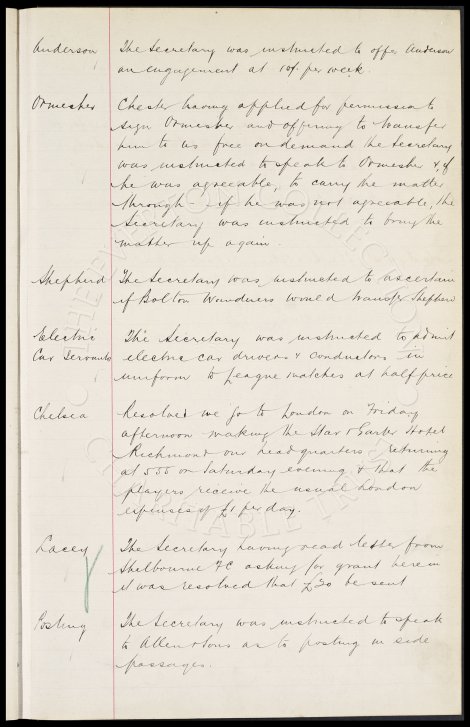 Anderson The Secretary was instructed to offer Anderson
an engagement at 10/- per week.
Ormesher Chester having applied for permission to
sign Ormesher and offering to transfer
him to us free on demand the Secretary
was instructed to speak to Ormesher &, if
he was agreeable, to carry the matter
through - if he was not agreeable, the
Secretary was instructed to bring the
matter up again.
Shepherd The Secretary was instructed to ascertain
if Bolton Wanderers would transfer Shepherd
Electric The Secretary was instructed to admit
Car Servants electric car drivers & conductors in
uniform to League matches at half price
Chelsea Resolved we go to London on Friday
afternoon making the Star & Garter Hotel
Richmond our headquarters returning
at 5 55 on Saturday evening & that the
players receive the usual London
expenses of £1 per day.
Lacey The Secretary having read letter from
Shelbourne FC asking for grant herein
it was resolved that £20 be sent
Posting The Secretary was instructed to speak
to Allen & Sons as to posting in side
passages.